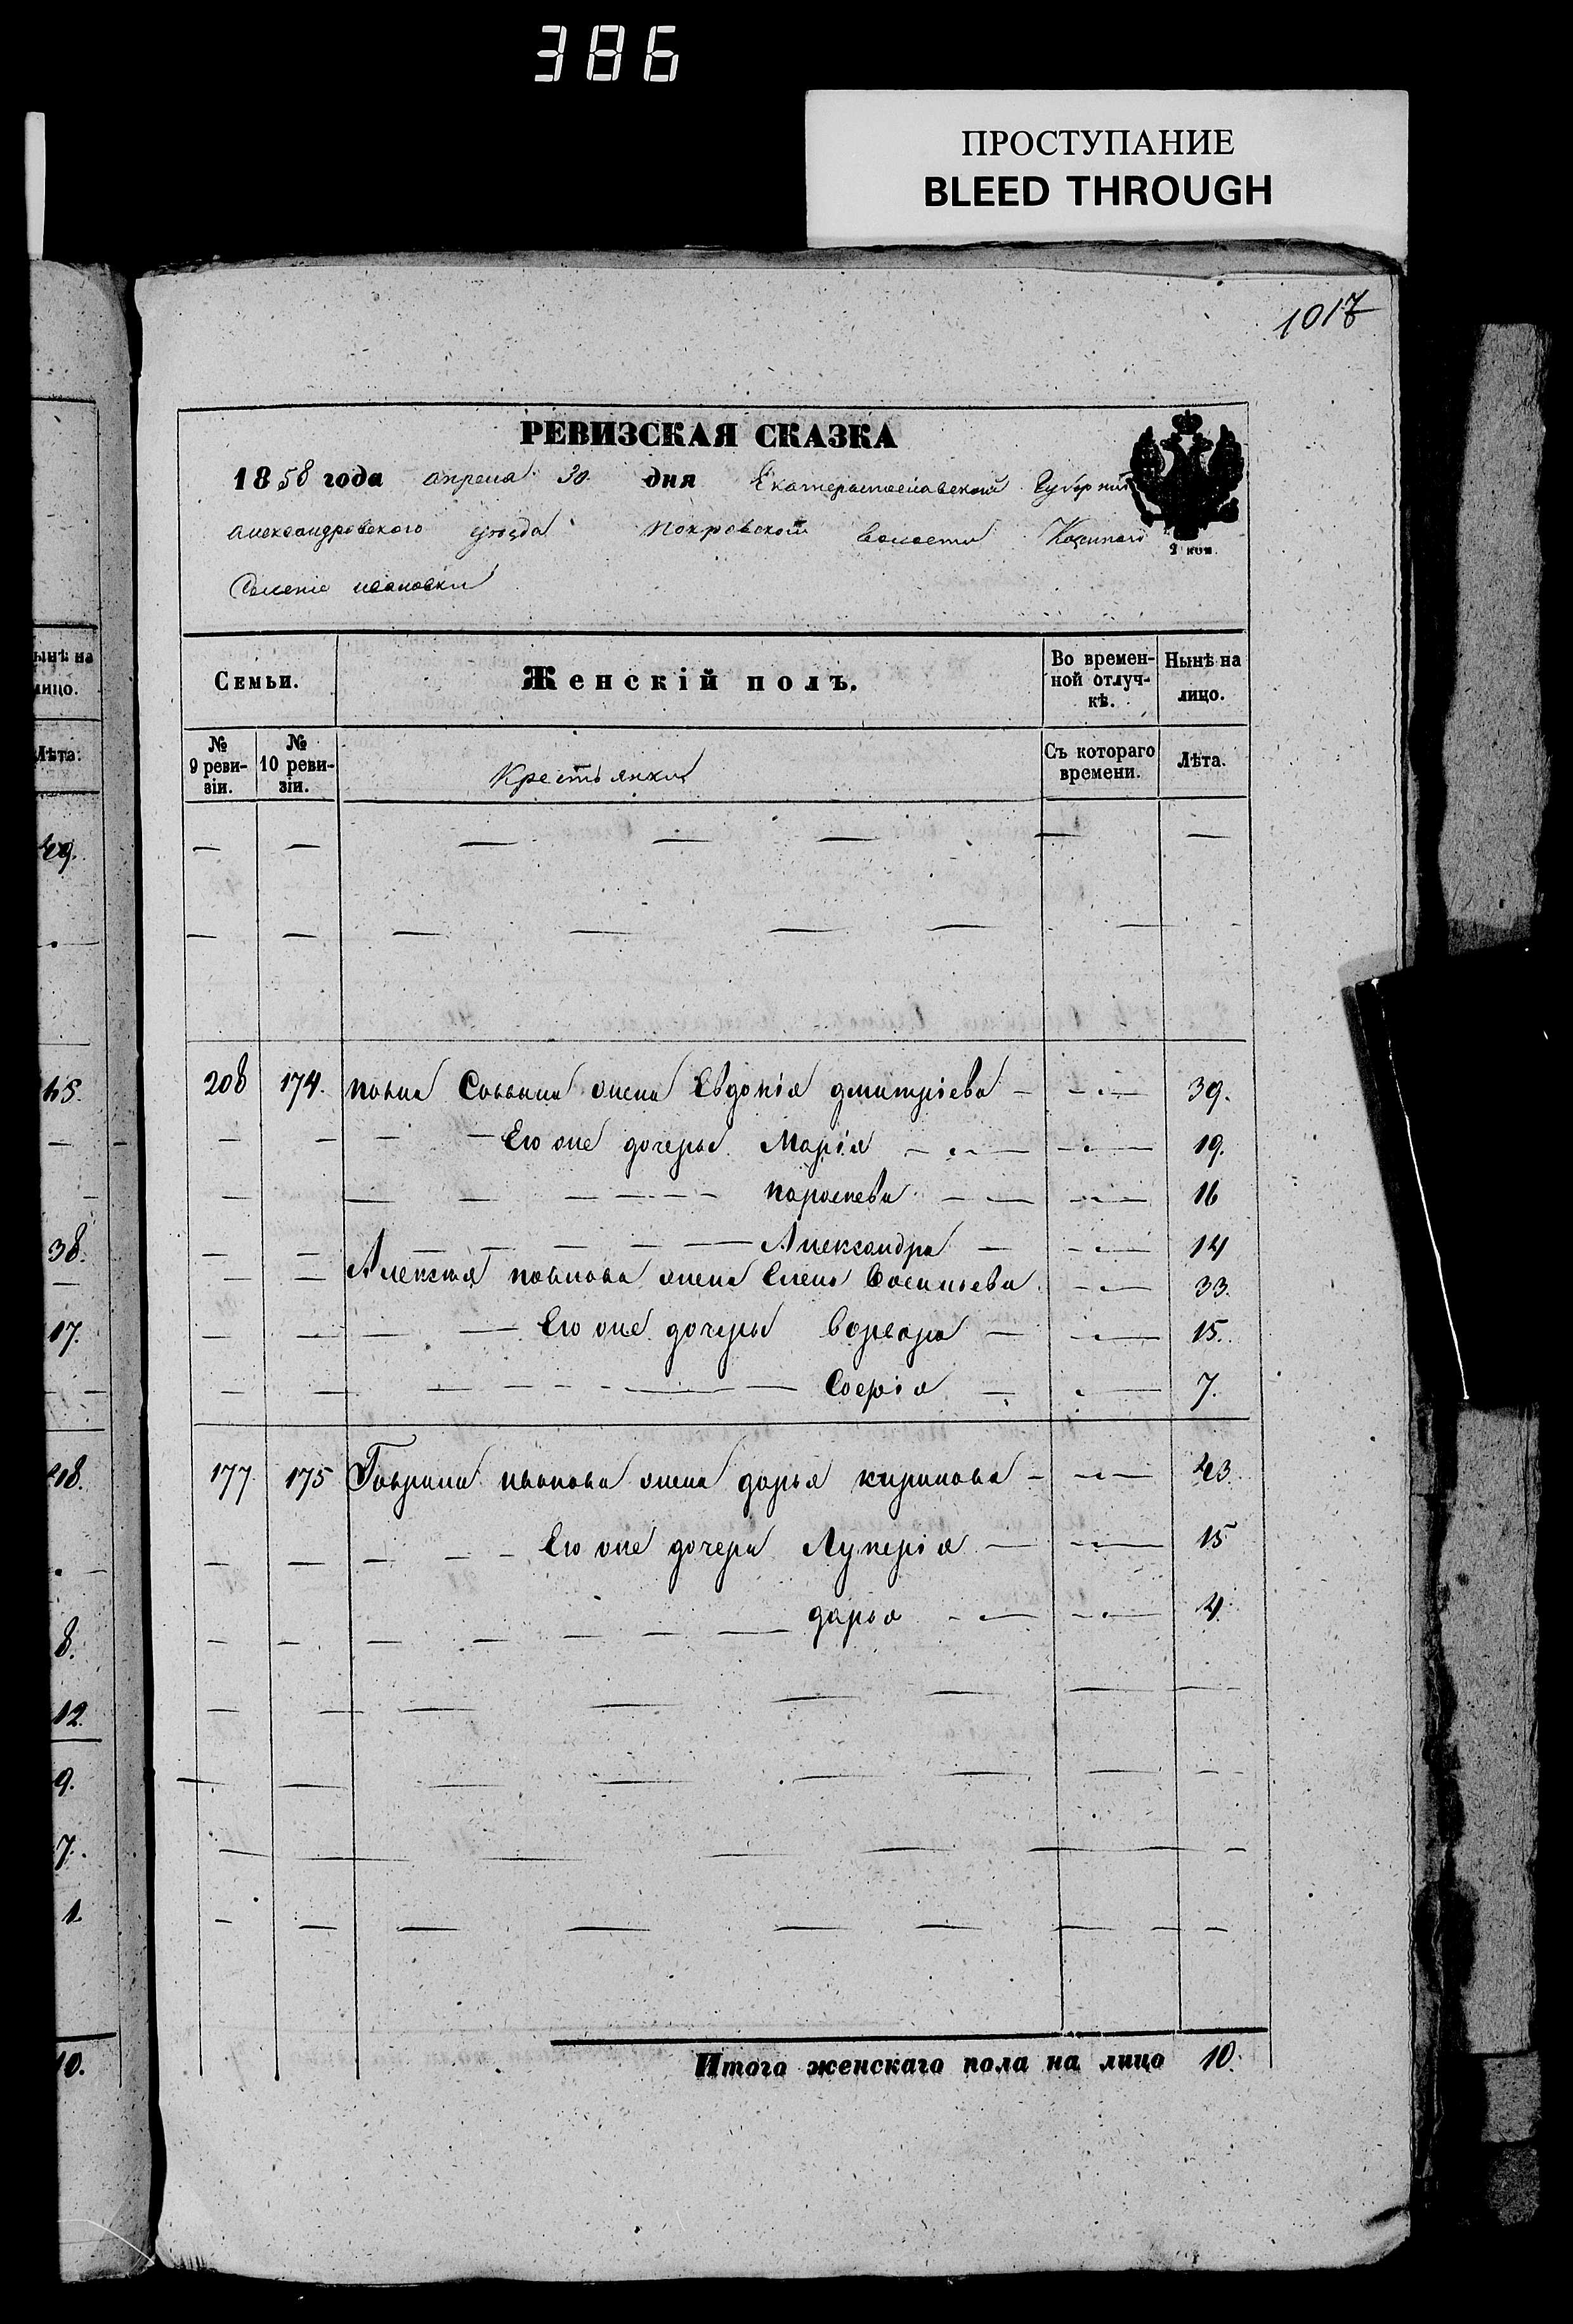 386
ПРОСТУПАНИЕ
BLEED THROUGH
1017
РЕВИЗСКАЯ СКАЗКА
1858 года апреля 30 дня Екатеринославской Губернии
Александровского уезда Покровской волости Казеннаго
Селенія Ивановки
Семьи. Женскій полъ. Во времен- Нынѣ на
ной отлуч- лицо.
кѣ.
№ № Съ котораго Лѣта.
9 реви- 10 реви- времени.
зіи. зіи.
Крестьянки
208 174. Павла Саввина жена Евдокія дмитріева 39.
Его же дочеры Марія 19.
Параскева 16
Александра 14
Алексѣя павлова жена Елена Васильева 33.
Его же дочеры Варвара 15.
Софія 7.
177 175 Гаврила иванова жена дарья кирилова 43.
Его же дочери Лукерія 15
дарья 4
Итого женскаго пола на лицо 10.
ынѣ на
лицо.
Лѣта.
49.
45.
38.
17.
8.
12.
9.
7.
1.
10.
2 коп.